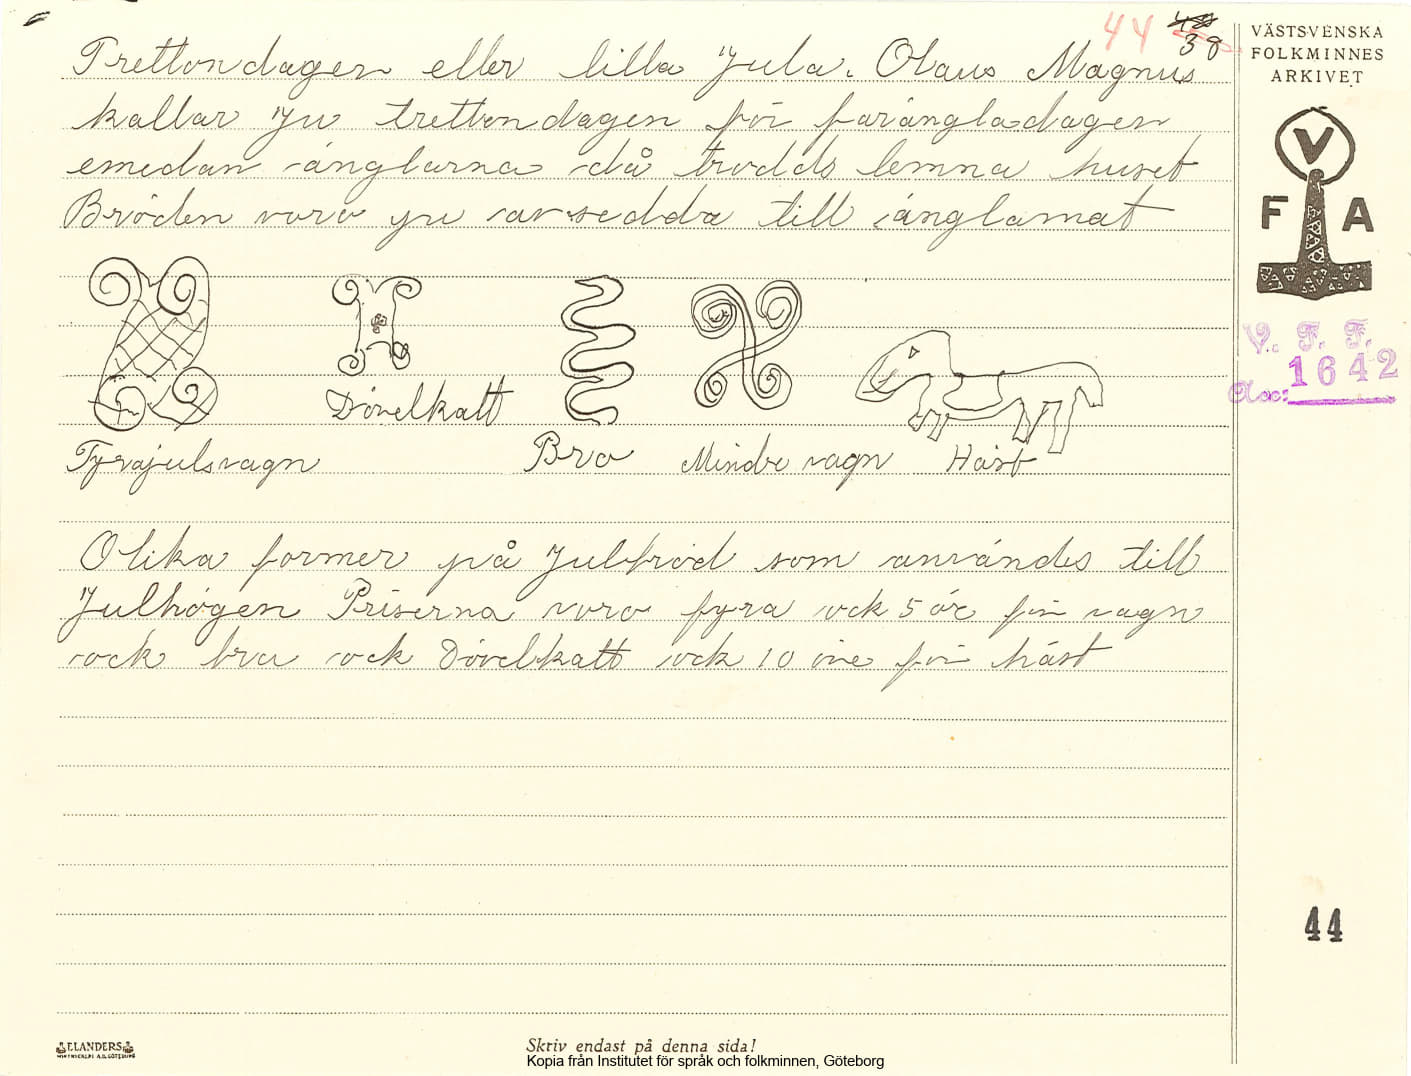 44 38
Trettondagen eller lilla Jula. Olaus Magnus
kallar ju trettondagen för farängladagen
emedan änglarna då trodds lemna huset
Bröden voro ju avsedda till änglamat
Dövelkatt
Tyrajulsvagn Bro Mindre vagn Häst
Olika former på Julbröd som användes till
Julhögen Priserna voro fyra ock 5 öre för vagn
ock bro ock Dövelkatt ock 10 öre för häst
VÄSTSVENSKA
FOLKMINNES
ARKIVET
V
F A
V. F. F.
Acc: 1642
44
ELANDERS
Skriv endast på denna sida!
Kopia från Institutet för språk och folkminnen, Göteborg